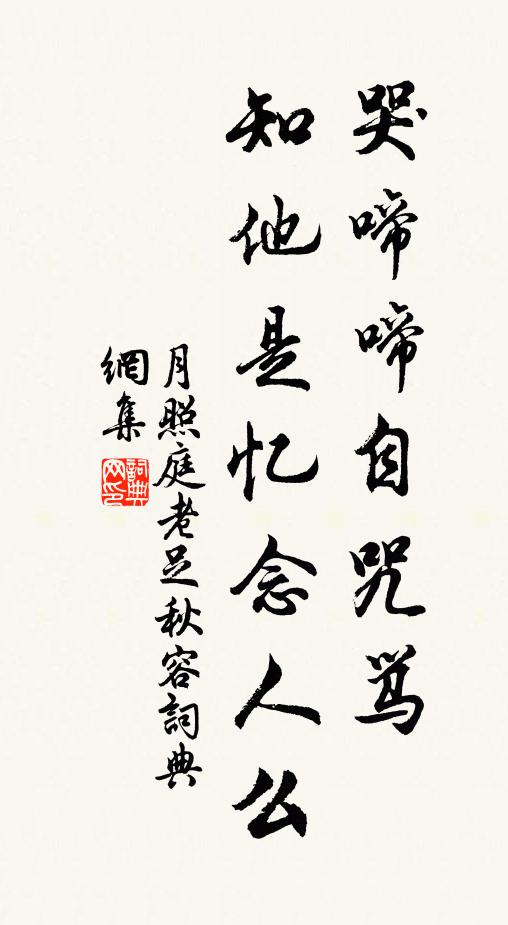 哭啼啼自咒骂
知他是忆念人么
月照庭老足秋容詞典
網集
詞典网印